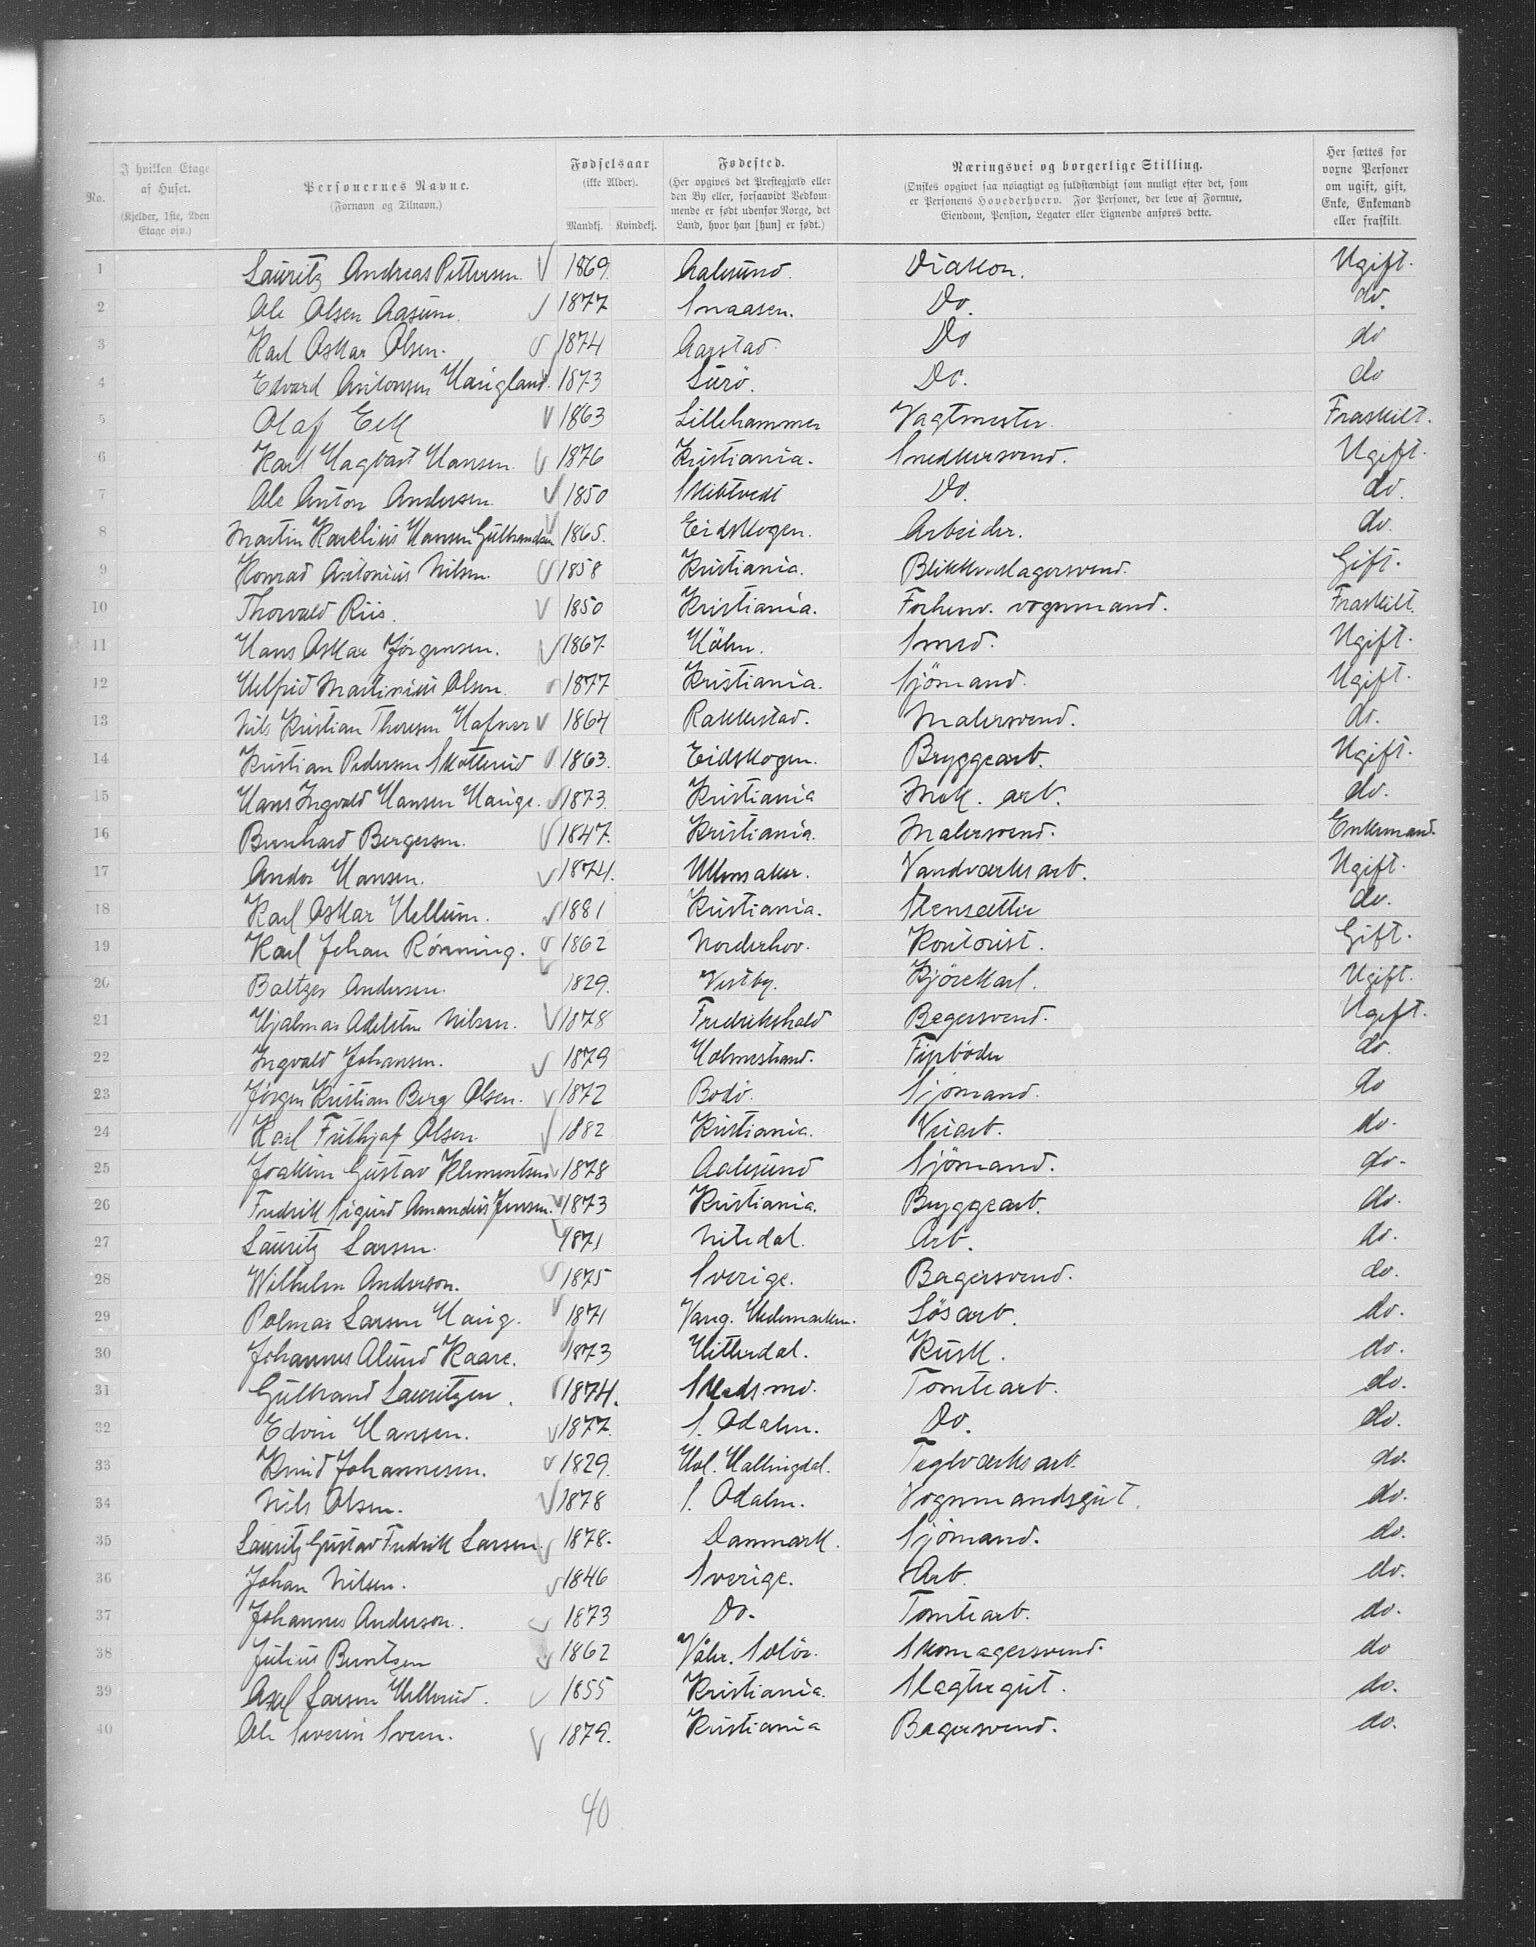 No.
I hvilken Etage af Huset. (Kjelder, 1ste, 2den Etage osv.)
Personernes Navne. (Fornavn og Tilnavn.)
Fødselsaar (ikke Alder). Mandkj. Kvindekj.
Fødested. (Her opgives det Prestegjæld eller den By eller, forsaavidt Vedkommende er født udenfor Norge, det Land, hvor han [hun] er født.)
Næringsvei og borgerlige Stilling. (Ønskes opgivet saa nøiagtigt og fuldstændigt som muligt efter det, som er Personens Hovederhverv. For Personer, der leve af Formue, Eiendom, Pension, Legater eller Lignende anføres dette.)
Her sættes for voxne Personer om ugift, gift, Enke, Enkemand eller fraskilt.
1 Lauritz Andreas Pettersen 1869. Aalesund. Diakon. Ugift.
2 Ole Olsen Aasum. 1877 Snaasen. Do. do.
3 Karl Oskar Olsen. 1874 Aarstad. Do do
4 Edvard Antonsen Haugland. 1873 Surö. Do. do
5 Olaf Eek 1863 Lillehammer Vagtmester Fraskilt.
6 Karl Hagbart Hansen. 1876 Kristiania. Snedkersvend. Ugift.
7 Ole Anton Andersen. 1850 Skibtvedt Do. do.
8 Martin Karelius Hansen Gulbrandsen 1865. Eidskogen. Arbeider. do.
9 Konrad Antonius Nilsen. 1858 Kristiania. Blikkenslagersvend. Gift.
10 Thorvald Riis. 1850 Kristiania. Forhenv. vognmand. Fraskilt.
11 Hans Oskar Jörgensen. 1867 Höhn. Smed. Ugift.
12 Helfrid Martinius Olsen. 1877 Kristiania. Sjömand. Ugift.
13 Nils Kristian Thoresen Hafner 1864 Rakkestad. Malersvend. do.
14 Kristian Pedersen Skotterud 1863. Eidskogen. Bryggearb. Ugift.
15 Hans Ingvald Hansen Hauge. 1873. Kristiania Mek. arb. do.
16 Bernhard Bergersen. 1847. Kristiania. Malersvend. Enkemand.
17 Andor Hansen. 1874. Ullensaker. Vandværksarb. Ugift.
18 Karl Oskar Hellum. 1881 Kristiania. Stensætter do.
19 Karl Johan Rönning. 1862 Norderhov. Kontorist. Gift.
20 Baltzer Andersen. 1829. Vestby. Kjörekarl. Ugift.
21 Hjalmar Adelsten Nilsen. 1878 Fredrikshald Bagersvend. Ugift.
22 Ingvald Johansen. 1879 Holmestrand. Fyrböder do.
23 Jörgen Kristian Berg Olsen. 1872 Bodö. Sjömand. do
24 Karl Frithjof Olsen 1882 Kristiania. Veiarb. do.
25 Joakim Gustav Klementsen 1878 Aalesund Sjömand. do.
26 Fredrik Sigurd Amandus Jensen. 1873 Kristiania. Bryggearb. do.
27 Lauritz Larsen. 1871 Nitedal. Arb. do.
28 Wilhelm Anderson. 1875 Sverige. Bagersvend. do.
29 Palmar Larsen Haug. 1871 Vang. Hedemarken. Lösarb. do.
30 Johannes Alund Kaare. 1873 Hitterdal. Kusk. do.
31 Gulbrand Lauritzen. 1874. Skedsmo. Tomtearb. do.
32 Edvin Hansen. 1877. S. Odalen. Do. do.
33 Knud Johannesen. 1829. Hol. Hallingdal. Teglværksarb. do.
34 Nils Olsen. 1878 S. Odalen. Vognmandsgut. do.
35 Lauritz Gustav Fredrik Larsen. 1878. Danmark. Sjömand. do.
36 Johan Nilsen. 1846 Sverige. Arb. do.
37 Johannes Anderson. 1873 Do. Tomtearb. do.
38 Julius Berntsen 1862 Våler. Solör. Skomagersvend. do
39 Axel Larsen Hellerud. 1855 Kristiania. Slagtergut. do.
40 Ole Severin Sveen. 1879. Kristiania Bagersvend. do.
40